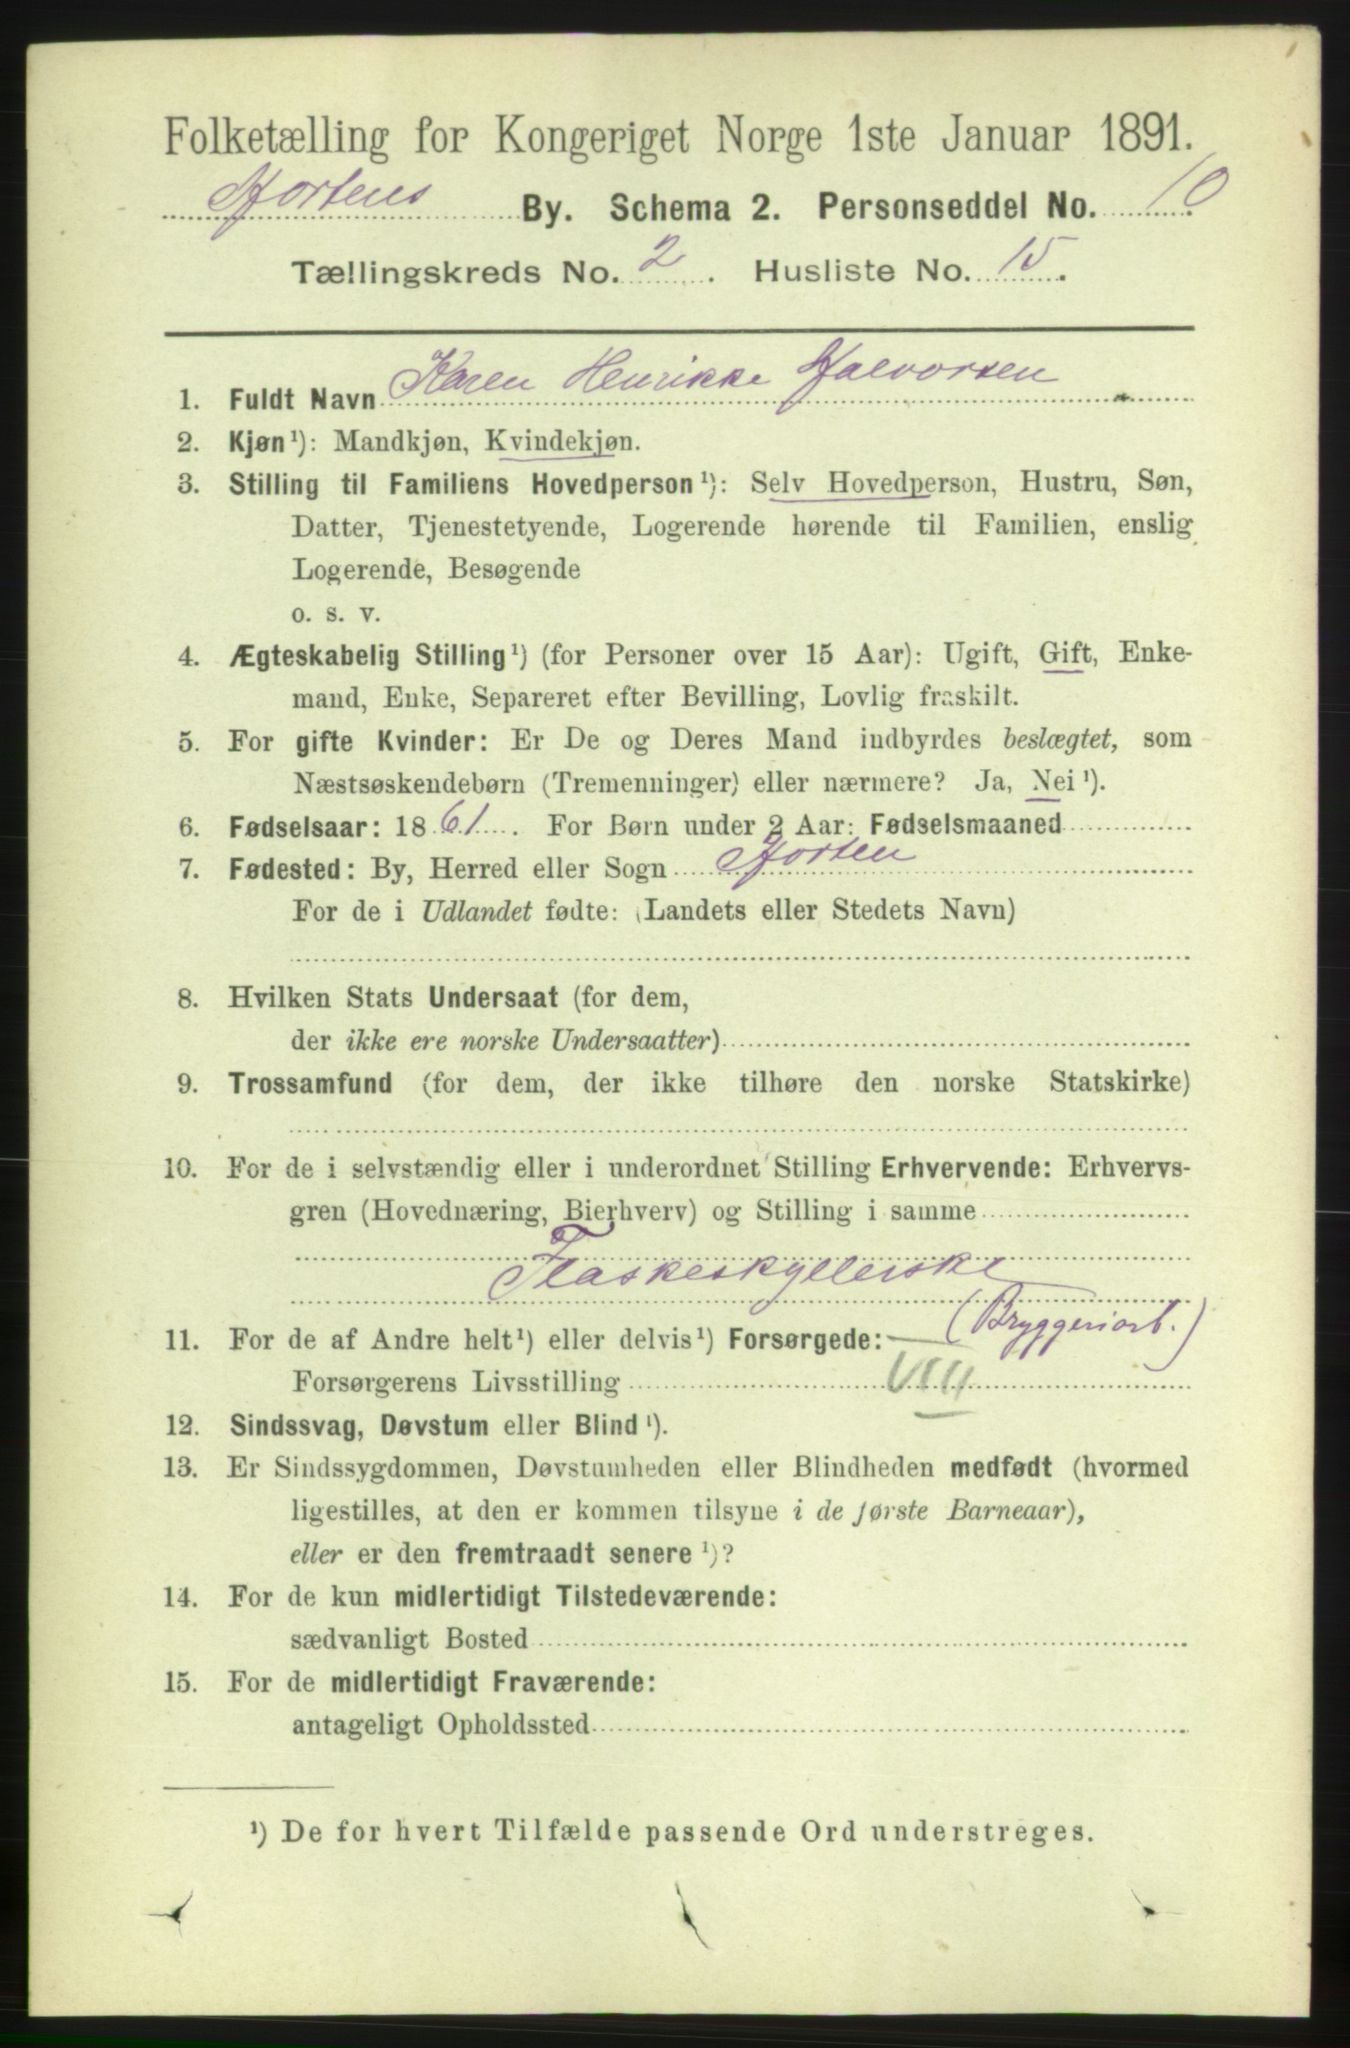 Folketælling for Kongeriget Norge 1ste Januar 1891.
Hortens By. Schema 2. Personseddel No. 10
Tællingskreds No. 2. Husliste No. 15.
1. Fuldt Navn Karen Henrikke Halvorsen
2. Kjøn¹): Mandkjøn, Kvindekjøn.
3. Stilling til Familiens Hovedperson¹): Selv Hovedperson, Hustru, Søn,
Datter, Tjenestetyende, Logerende hørende til Familien, enslig
Logerende, Besøgende
o. s. v.
4. Ægteskabelig Stilling¹) (for Personer over 15 Aar): Ugift, Gift, Enke-
mand, Enke, Separeret efter Bevilling, Lovlig fraskilt.
5. For gifte Kvinder: Er De og Deres Mand indbyrdes beslægtet, som
Næstsøskendebørn (Tremenninger) eller nærmere? Ja, Nei¹).
6. Fødselsaar: 1861. For Børn under 2 Aar: Fødselsmaaned
7. Fødested: By, Herred eller Sogn Horten
For de i Udlandet fødte: (Landets eller Stedets Navn)
8. Hvilken Stats Undersaat (for dem,
der ikke ere norske Undersaatter)
9. Trossamfund (for dem, der ikke tilhøre den norske Statskirke)
10. For de i selvstændig eller i underordnet Stilling Erhvervende: Erhvervs-
gren (Hovednæring, Bierhverv) og Stilling i samme
Flaskeskyllerske
(Bryggeriarb.)
11. For de af Andre helt¹) eller delvis¹) Forsørgede: —
Forsørgerens Livsstilling VIII
12. Sindssvag, Døvstum eller Blind¹).
13. Er Sindssygdommen, Døvstumheden eller Blindheden medfødt (hvormed
ligestilles, at den er kommen tilsyne i de første Barneaar),
eller er den fremtraadt senere¹)?
14. For de kun midlertidigt Tilstedeværende:
sædvanligt Bosted
15. For de midlertidigt Fraværende:
antageligt Opholdssted
¹) De for hvert Tilfælde passende Ord understreges.